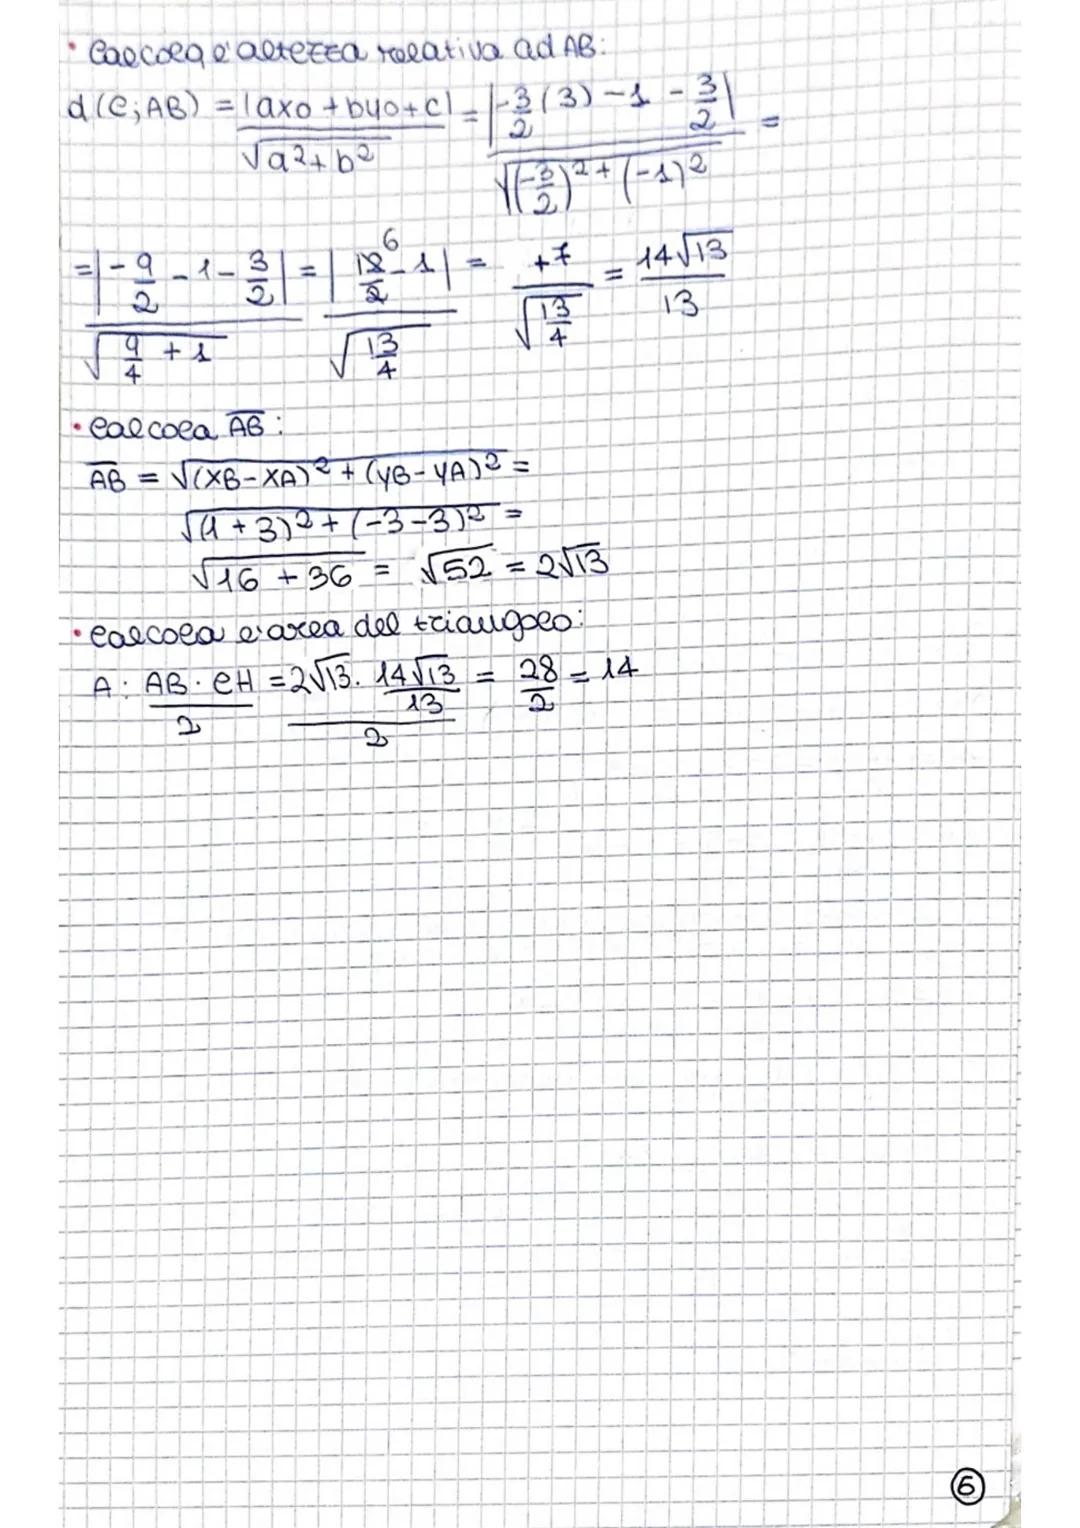 • Calcola l'altezza relativa ad AB:
d(C;AB) = |ax0 + by0 + c| / √a² + b² = |-3/2 (3) - 1 - 3/2| / √(-3/2)² + (-1)² =
= |-9/2 - 1 - 3/2| / √9/4 + 1 = |12/2 6 - 1| / √13/4 = +7 / √13/4 = 14√13 / 13
• Calcola AB:
AB = √(xB - xA)² + (yB - yA)² =
√(1 + 3)² + (-3 - 3)² =
√16 + 36 = √52 = 2√13
• Calcola l'area del triangolo:
A: AB · CH / 2 = 2√13 · 14√13/13 / 2 = 28/2 = 14
6